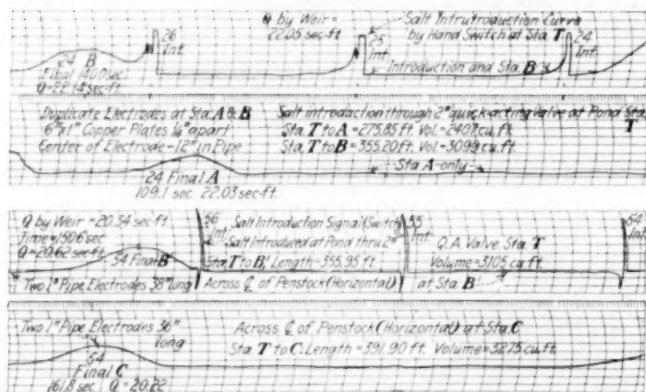 Q by Weir =
22.05 sec-ft
Salt Intrutroduction Curve
by Hand Switch at Sta. T
26
Int.
25
Int.
24
Int.
Introduction and Sta. B
24 B
Final 140.0 sec.
Q=22.14 sec-ft.
Duplicate Electrodes at Sta. A & B
6"x1" Copper Plates ¼" apart
Center of Electrode-12" in Pipe
Salt introduction through 2" quick-acting Valve at Pond Sta.
T
Sta. T to A = 275.85 ft. Vol.=2407 cu.ft.
Sta. T to B = 355.20 ft. Vol=3099 cu.ft.
Sta A-only
24 Final A
109.1 sec 22.03 sec-ft.
Q by Weir =20.34 sec-ft
Time=150.6 sec
Q=20.62 sec-ft.
54 Final B
Two 1" Pipe Electrodes 38" long
56
Int.
Salt Introduction Signal (Switch)
Salt Introduced at Pond thru 2"
Sta. T to B; Length = 355.95 ft.
Across ℄ of Penstock (Horizontal)
55
Int.
Q.A. Valve. Sta. T
Volume=3105 cu.ft.
at Sta. B
54
Int.
Two 1" Pipe Electrodes 36"
long
54
Final C
161.8 sec Q = 20.22
Across ℄ of Penstock (Horizontal) at Sta. C
Sta. T to C: Length = 391.90 ft. Volume=3275 cu.ft.